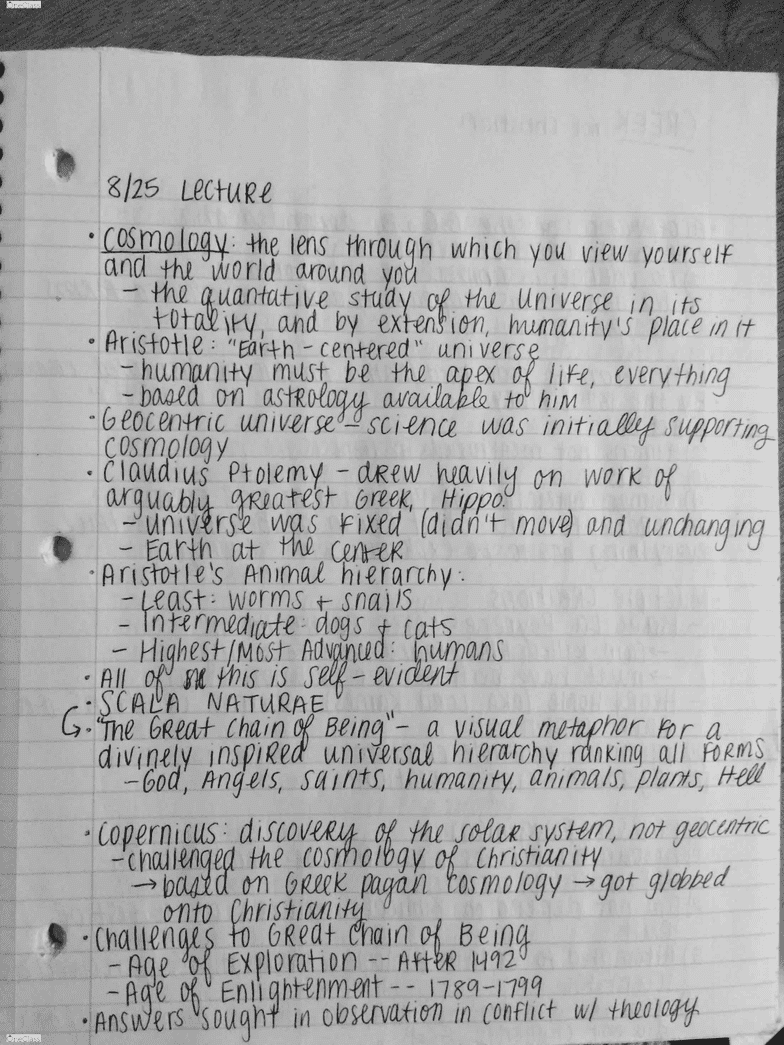 8/25 Lecture
· Cosmology: the lens through which you view yourself
and the world around you
- the quantative study of the Universe in its
totality, and by extension, humanity's place in it
· Aristotle: "Earth-centered" universe
- humanity must be the apex of life, everything
- based on astrology available to him
· Geocentric universe - science was initially supporting
cosmology
· Claudius Ptolemy - drew heavily on work of
arguably greatest Greek, Hippo.
- universe was fixed (didn't move) and unchanging
- Earth at the center
· Aristotle's Animal hierarchy:
- Least: worms + snails
- Intermediate: dogs + cats
- Highest/Most Advanced: humans
· All of this is self-evident
· SCALA NATURAE
· "The Great Chain of Being" - a visual metaphor for a
divinely inspired universal hierarchy ranking all forms
- God, Angels, saints, humanity, animals, plants, Hell
· Copernicus: discovery of the solar system, not geocentric
- challenged the cosmology of Christianity
→ based on Greek pagan cosmology → got globbed
onto Christianity
· Challenges to Great Chain of Being
- Age of Exploration -- After 1492
- Age of Enlightenment -- 1789-1799
· Answers sought in observation in conflict w/ theology